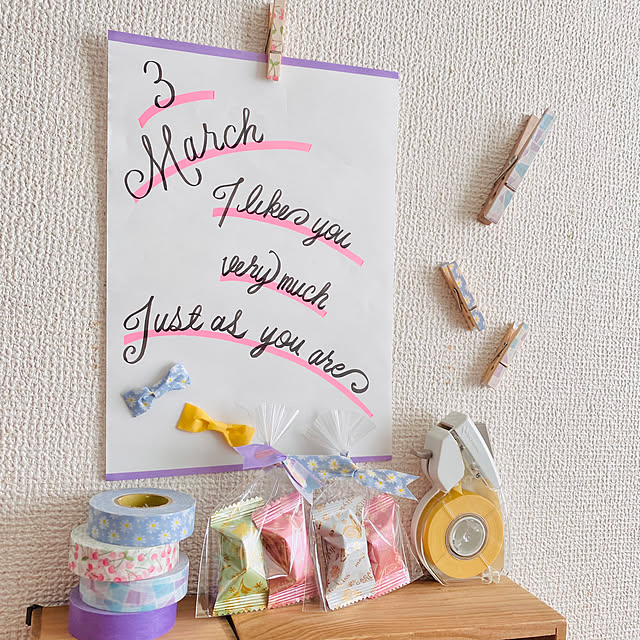 3
March
I like you
very much
Just as you are